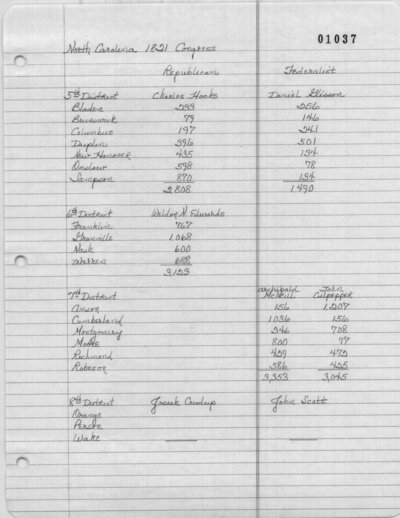 01037
North Carolina 1821 Congress
Republicans Federalist
5th District Charles Hooks Daniel Glisson
Bladen 233 256
Brunswick 79 146
Columbus 197 241
Duplin 396 501
New Hanover 435 134
Onslow 598 78
Sampson 870 134
2,808 1490
6th District Weldon N. Edwards
Franklin 767
Granville 1,068
Nash 600
Warren 688
3,123
7th District Archibald McNeill John Culpepper
Anson 156 1,207
Cumberland 1036 156
Montgomery 346 708
Moore 800 77
Richmond 429 472
Robeson 586 425
3,353 3,045
8th District Josiah Crudup John Scott
Orange
Person
Wake